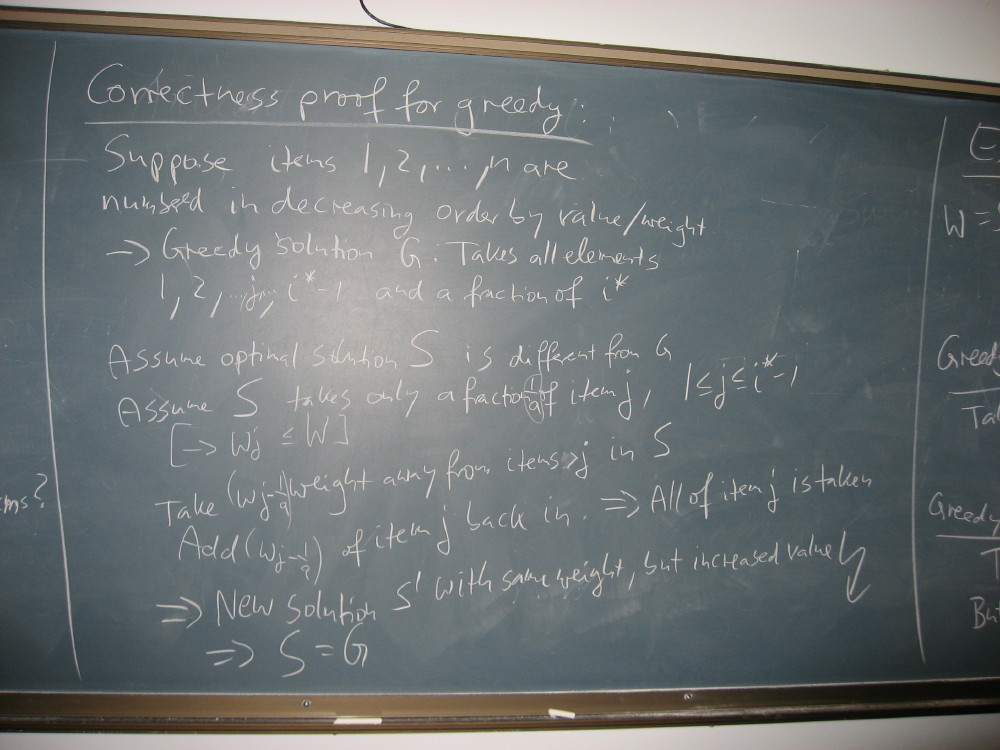 Correctness proof for greedy:
Suppose items 1, 2, ..., n are
numbered in decreasing order by value/weight
-> Greedy solution G. Takes all elements
1, 2, ..., j, ..., i*-1 and a fraction of i*
Assume optimal solution S is different from G
Assume S takes only a fraction of item j, 1 ≤ j ≤ i*-1
[-> Wj ≤ W]
Take (Wj - 1/a) weight away from items >j in S
Add (Wj - 1/a) of item j back in. => All of item j is taken
=> New solution S' with same weight, but increased value
=> S = G
ms?
W =
Greedy
Greedy